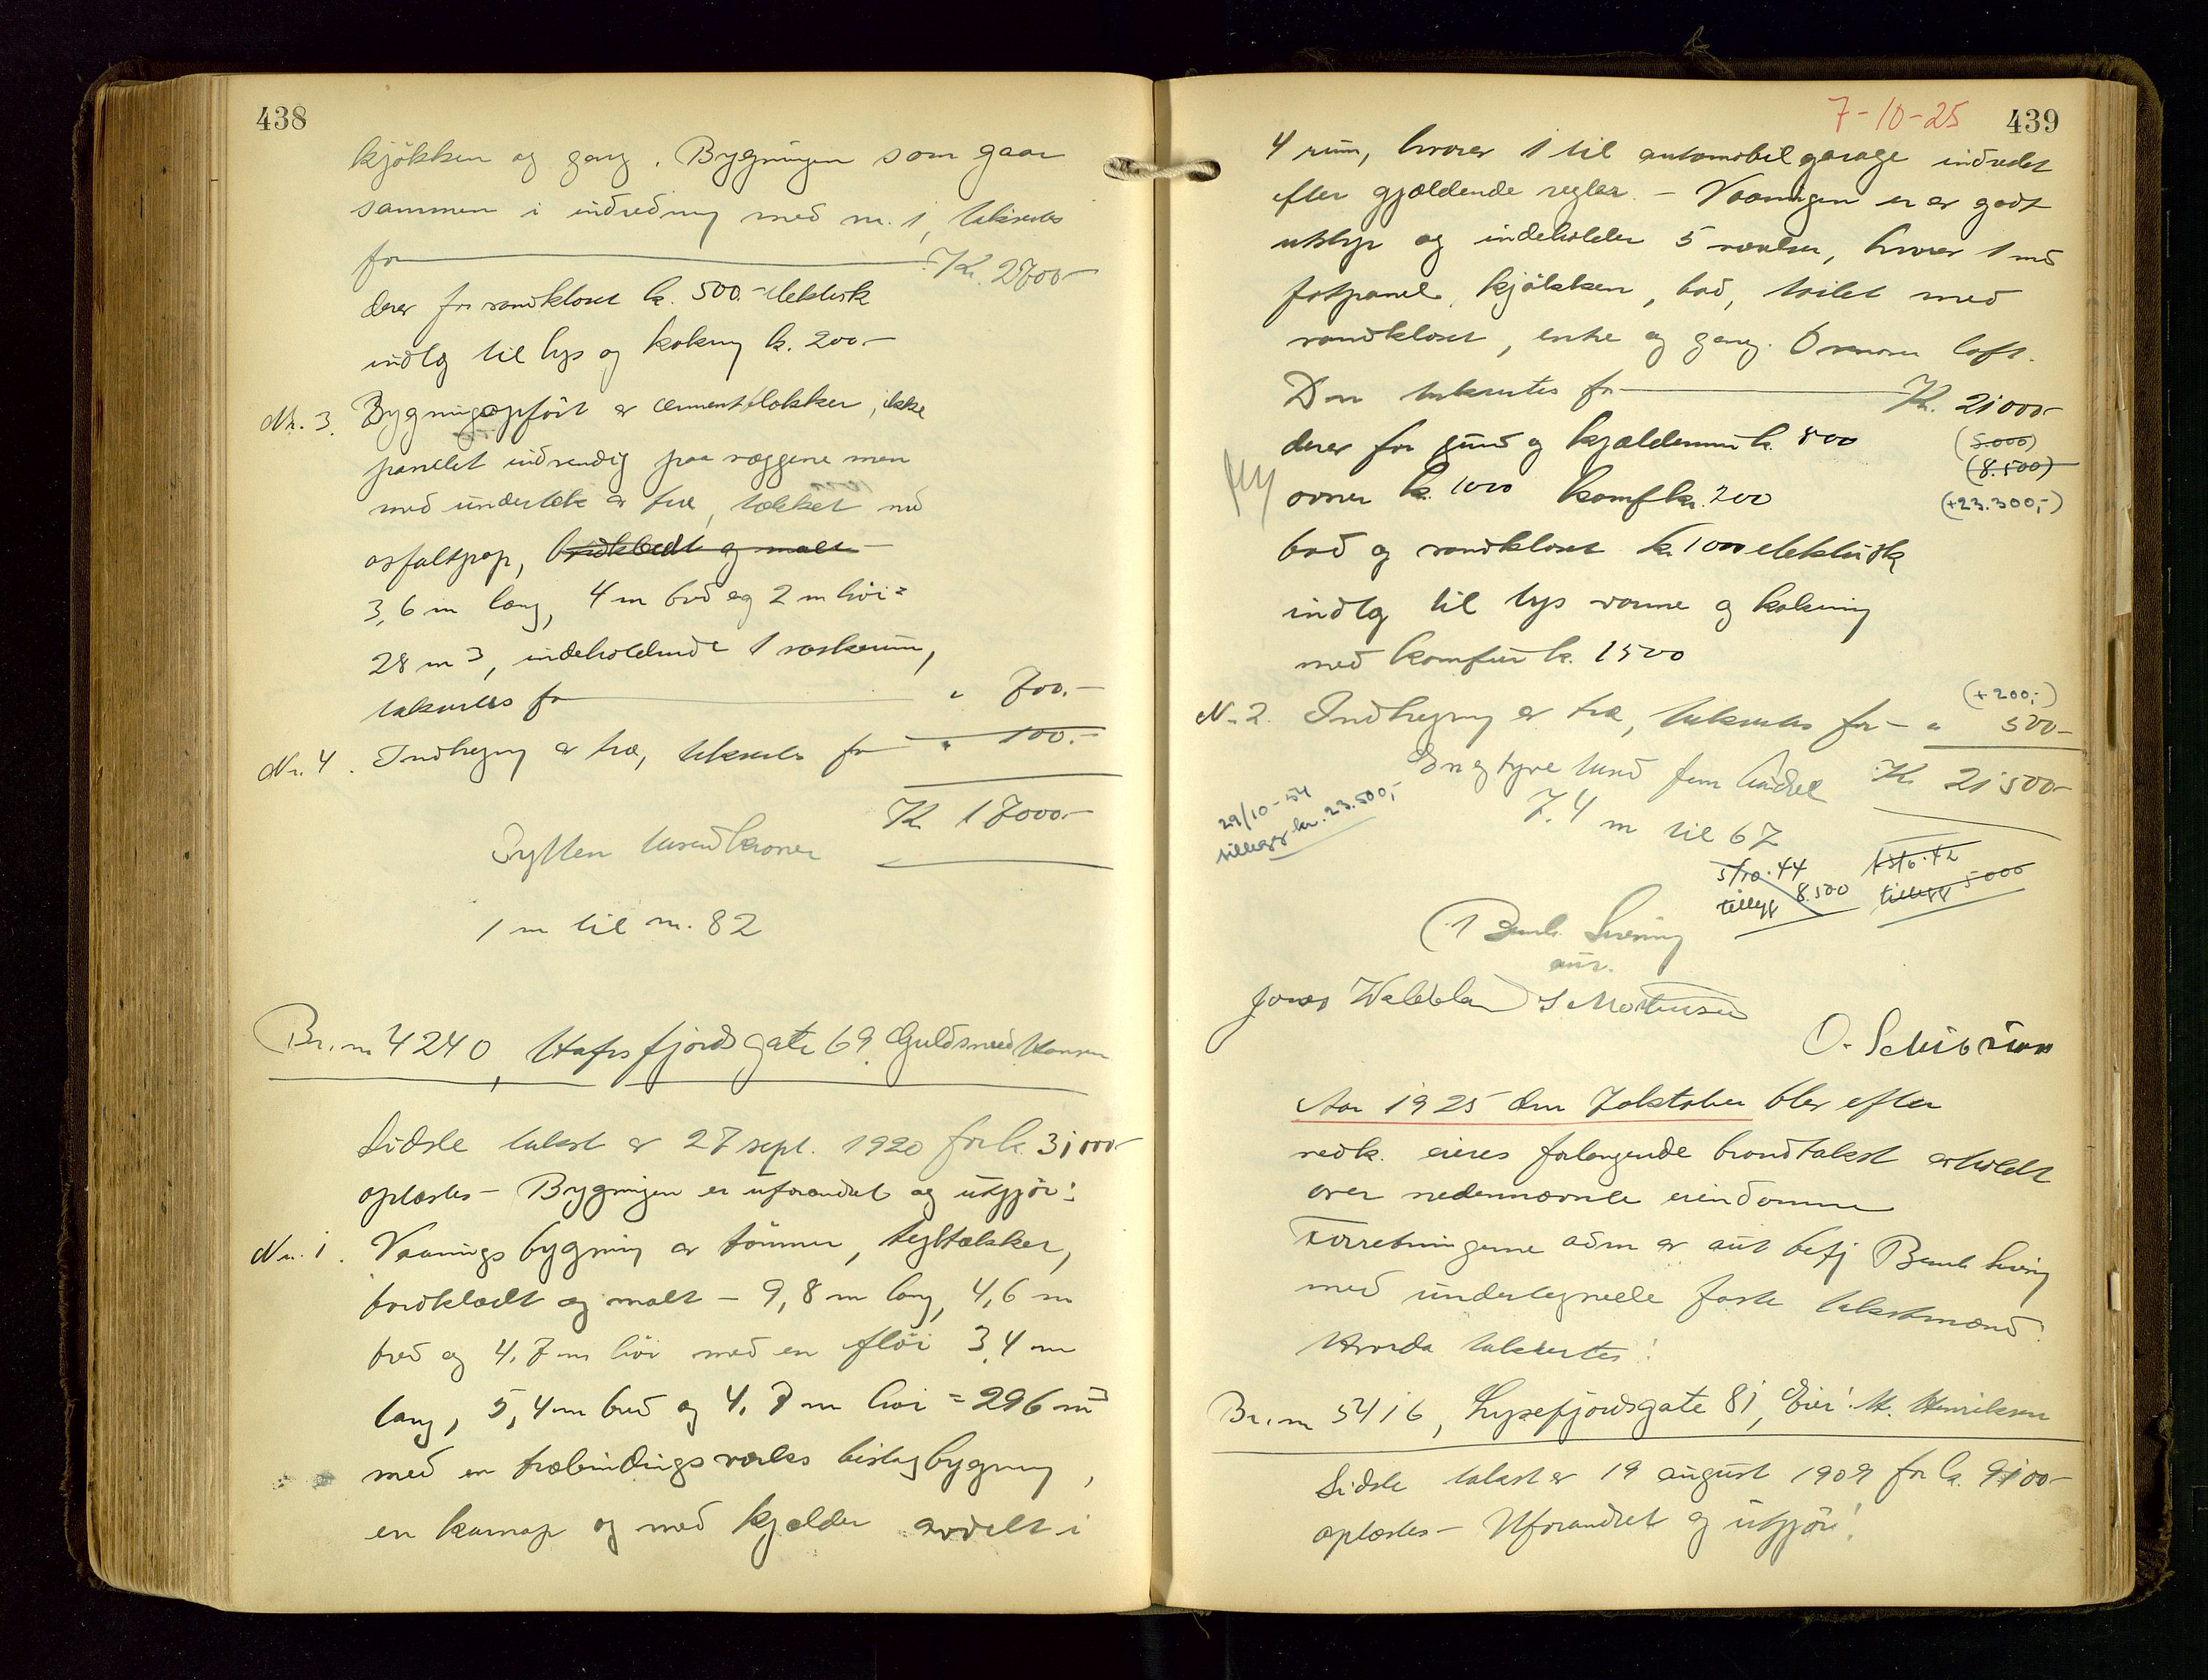 438
kjökken og gang. Bygningen som gaar
sammen i indredning med nr. 1, takseres
for Kr. 2700-
derav for vandkloset k. 500.- elektrisk
indlg til lys og kokning k. 200-
Nr. 3. Bygning opført av cementblokker, ikke
panelet indvendig paa væggene men
med undertak av træ, tækket med
asfaltpap, bordklædt og malt
3,6 m lang, 4 m bred og 2 m höi =
28 m3, indeholdende 1 vaskerum,
takseres for " 700.-
Nr. 4. Indhegning av træ, takseres for " 100.-
Kr 17000.-
Sytten tusend kroner
1 m til nr. 82
Br. nr 4240, Hafrsfjordsgate 69. Guldsmed Hansen
Sidste takst av 27 sept. 1920 for k. 31000-
oplæstes - Bygningen er uforandret og utgjör:
Nr. 1. Vaaningsbygning av tömmer, tegltækket,
bordklædt og malt - 9,8 m lang, 4,6 m
bred og 4,7 m höi med en flöi 3,4 m
lang, 5,4 m bred og 4,7 m höi = 296 m3
med en træbindingsverks bislagbygning,
en karnap og med kjelder avdelt i
7-10-25 439
4 rum, hvorav 1 til automobilgarage indredet
efter gjældende regler. - Vaaningen er av godt
utstyr og indeholder 5 værelser, hvorav 1 med
fotpanel, kjökken, bad, toilet med
vandkloset, entre og gang. Ovenover loft.
Den takseres for Kr. 21000-
derav for grund og kjældermur k. 800 (5.000)
(8.500)
ovner k. 1000 komf k. 200 (+23.300,-)
bad og vandkloset k. 1000 elektrisk
indlg til lys varme og kokning
med komfur k. 1500
(+200,-)
Nr. 2. Indhegning av træ, takseres for - " 500-
En og tyve tusend fem hundrede Kr 21500-
29/10-54
tillegg kr. 23.500,-
7.4 m til 67
5/10.44
tillegg 8.500
tillegg 5000
Bernh Sivering
aut.
Jonas S Mortensen
O. Schibevaag
Aar 1925 den 7 oktober blev efter
vedk. eieres forlangende brandtakst avholdt
over nedennævnte eiendomme
Forretningerne adm av aut befj Bernh Sivering
med undertegnede faste takstmænd
Hvorda taksertes:
Br. nr 5416, Lysefjordsgate 81, Eier: H. Henriksen
Sidste takst av 19 august 1909 for k. 9100-
oplæstes - Uforandret og utgjör: